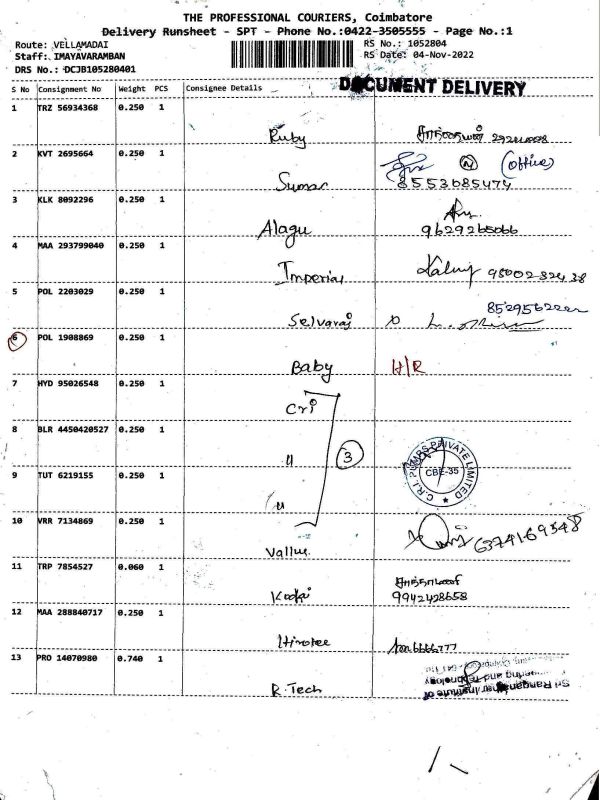 THE PROFESSIONAL COURIERS, Coimbatore
Delivery Runsheet - SPT - Phone No.:0422-3505555 - Page No.:1
Route: VELLAMADAI
RS No.: 1052804
Staff: IMAYAVARAMBAN
RS Date: 04-Nov-2022
DRS No.: DCJB105280401
DOCUMENT DELIVERY
S No Consignment No Weight PCS Consignee Details
1 TRZ 56934368 0.250 1
Ruby
2 KVT 2695664 0.250 1
(office)
Sumar 8553685474
3 KLK 8092296 0.250 1
Alagu 9629265066
4 MAA 293799040 0.250 1
Imperial
5 POL 2203029 0.250 1
Selvaraj
6 POL 1908869 0.250 1
Baby H/R
7 HYD 95026548 0.250 1
Cri
8 BLR 4450420527 0.250 1
11 3
9 TUT 6219155 0.250 1
11
C.R.I. PUMPS PRIVATE LIMITED
CBE-35
10 VRR 7134869 0.250 1
6374169548
11 TRP 7854527 0.060 1
Kodai 9942428658
12 MAA 288840717 0.250 1
13 PRO 14070980 0.740 1
R.Tech